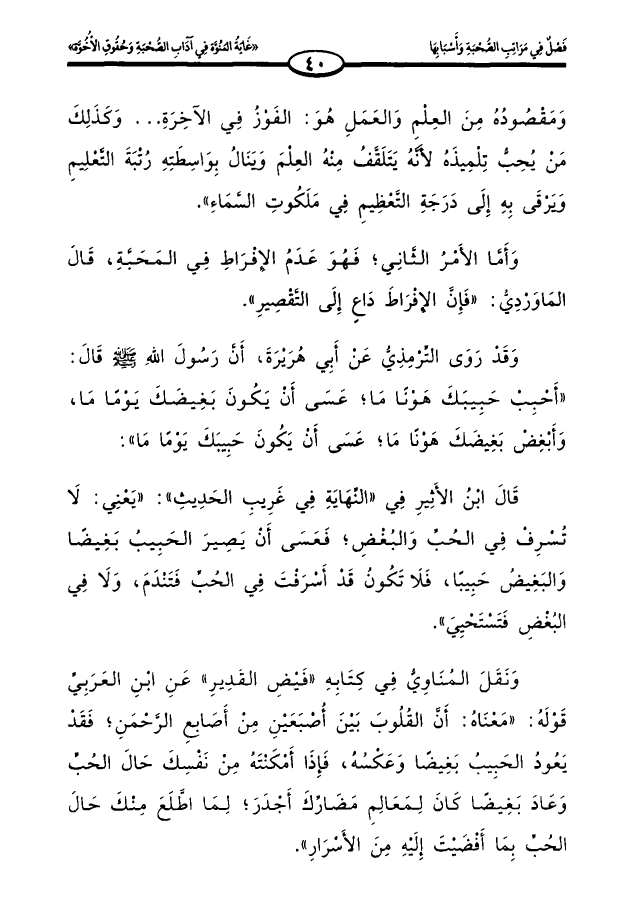 فَصْلٌ فِي مَرَاتِبِ الصُّحْبَةِ وَأَسْبَابِهَا
«غَايَةُ المُنُوَّة فِي آدَابِ الصُّحْبَةِ وَحُقُوقِ الأُخُوَّة»
٤٠
وَمَقْصُودُهُ مِنَ العِلْمِ وَالعَمَلِ هُوَ: الفَوْزُ فِي الآخِرَةِ... وَكَذَلِكَ
مَنْ يُحِبُّ تِلْمِيذَهُ لأَنَّهُ يَتَلَقَّفُ مِنْهُ العِلْمَ وَيَنَالُ بِوَاسِطَتِهِ رُتْبَةَ التَّعْلِيمِ
وَيَرْقَى بِهِ إِلَى دَرَجَةِ التَّعْظِيمِ فِي مَلَكُوتِ السَّمَاءِ».
وَأَمَّا الأَمْرُ الثَّانِي؛ فَهُوَ عَدَمُ الإِفْرَاطِ فِي المَحَبَّةِ، قَالَ
المَاوَرْدِيُّ: «فَإِنَّ الإِفْرَاطَ دَاعٍ إِلَى التَّقْصِيرِ».
وَقَدْ رَوَى التِّرْمِذِيُّ عَنْ أَبِي هُرَيْرَةَ، أَنَّ رَسُولَ اللهِ ﷺ قَالَ:
«أَحْبِبْ حَبِيبَكَ هَوْنًا مَا؛ عَسَى أَنْ يَكُونَ بَغِيضَكَ يَوْمًا مَا،
وَأَبْغِضْ بَغِيضَكَ هَوْنًا مَا؛ عَسَى أَنْ يَكُونَ حَبِيبَكَ يَوْمًا مَا»:
قَالَ ابْنُ الأَثِيرِ فِي «النِّهَايَةِ فِي غَرِيبِ الحَدِيثِ»: «يَعْنِي: لَا
تُسْرِفْ فِي الحُبِّ وَالبُغْضِ؛ فَعَسَى أَنْ يَصِيرَ الحَبِيبُ بَغِيضًا
وَالبَغِيضُ حَبِيبًا، فَلَا تَكُونُ قَدْ أَسْرَفْتَ فِي الحُبِّ فَتَنْدَمَ، وَلَا فِي
البُغْضِ فَتَسْتَحْيِيَ».
وَنَقَلَ المُنَاوِيُّ فِي كِتَابِهِ «فَيْضِ القَدِيرِ» عَنِ ابْنِ العَرَبِيِّ
قَوْلَهُ: «مَعْنَاهُ: أَنَّ القُلُوبَ بَيْنَ أُصْبَعَيْنِ مِنْ أَصَابِعِ الرَّحْمَنِ؛ فَقَدْ
يَعُودُ الحَبِيبُ بَغِيضًا وَعَكْسُهُ، فَإِذَا أَمْكَنْتَهُ مِنْ نَفْسِكَ حَالَ الحُبِّ
وَعَادَ بَغِيضًا كَانَ لِمَعَالِمِ مَضَارِّكَ أَجْدَرَ؛ لِمَا اطَّلَعَ مِنْكَ حَالَ
الحُبِّ بِمَا أَفْضَيْتَ إِلَيْهِ مِنَ الأَسْرَارِ».